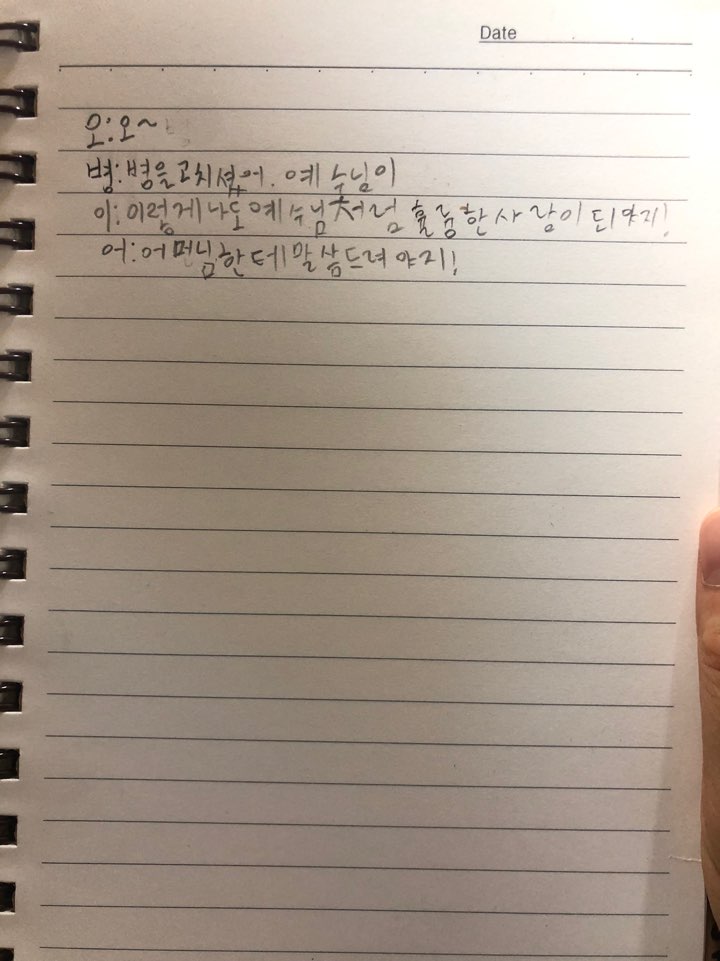 Date
오:오~
병:병을고치셨어. 예수님이
이:이렇게나도예수님처럼 훌륭한사람이되야지!
어:어머님한테말씀드려야지!